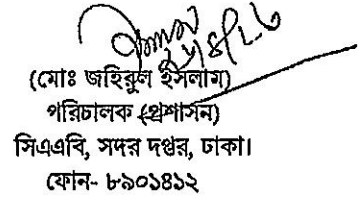 (মোঃ জহিরুল ইসলাম)
পরিচালক (প্রশাসন)
সিএএবি, সদর দপ্তর, ঢাকা।
ফোন- ৮৯০১৪১২